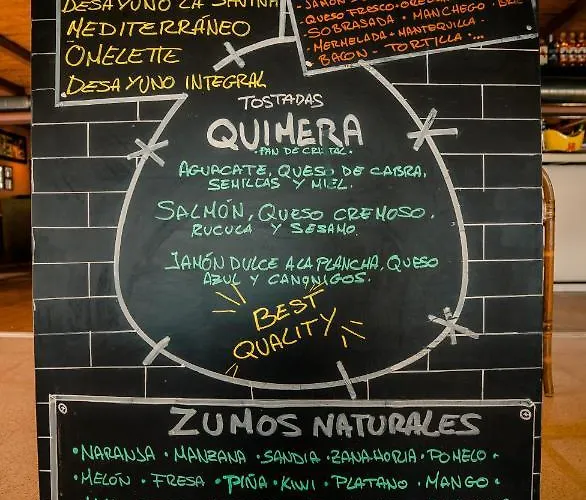 DESAYUNO LA SANTINA
MEDITERRÁNEO
OMELETTE
DESAYUNO INTEGRAL
QUESO FRESCO
SOBRASADA · MANCHEGO ·
· MERMELADA · MANTEQUILLA ·
BACON - TORTILLA ...
TOSTADAS
QUIMERA
· PAN DE CRISTAL ·
AGUACATE, QUESO DE CABRA,
SEMILLAS Y MIEL.
SALMÓN, QUESO CREMOSO,
RUCULA Y SESAMO.
JAMÓN DULCE A LA PLANCHA, QUESO
AZUL Y CANONIGOS.
BEST
QUALITY
ZUMOS NATURALES
· NARANJA · MANZANA · SANDIA · ZANAHORIA · POMELO ·
· MELÓN · FRESA · PIÑA · KIWI · PLATANO · MANGO ·